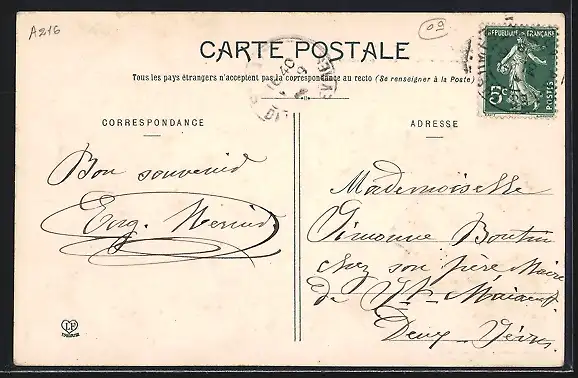 A216
09
CARTE POSTALE
RÉPUBLIQUE FRANÇAISE
5c
POSTES
Tous les pays étrangers n'acceptent pas la correspondance au recto (Se renseigner à la Poste)
CORRESPONDANCE
ADRESSE
Bon souvenir
Eug.
Mademoiselle
Simonne Boutin
chez son père Maire
de St Maixent
Deux-Sèvres
LF